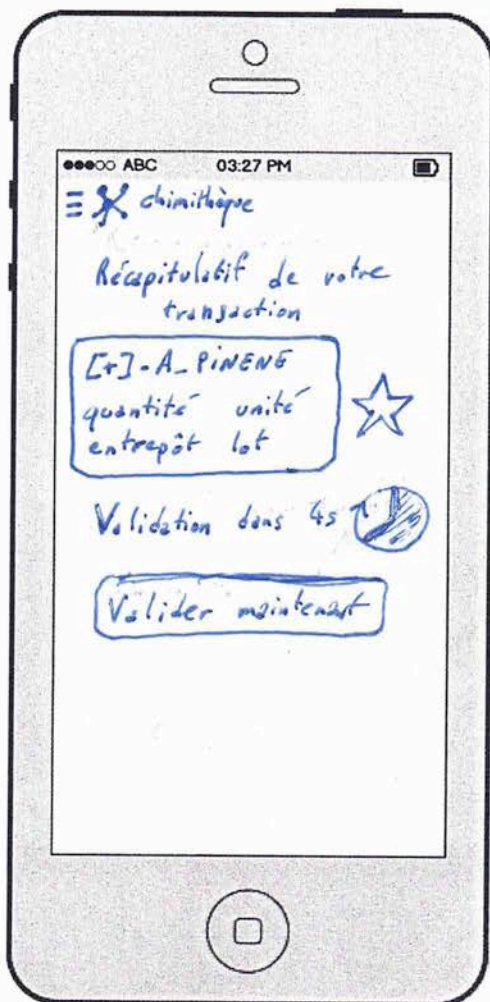 ABC 03:27 PM
chimithèque
Récapitulatif de votre
transaction
[+]-A_PINENE
quantité unité
entrepôt lot
Validation dans 4s
Valider maintenant